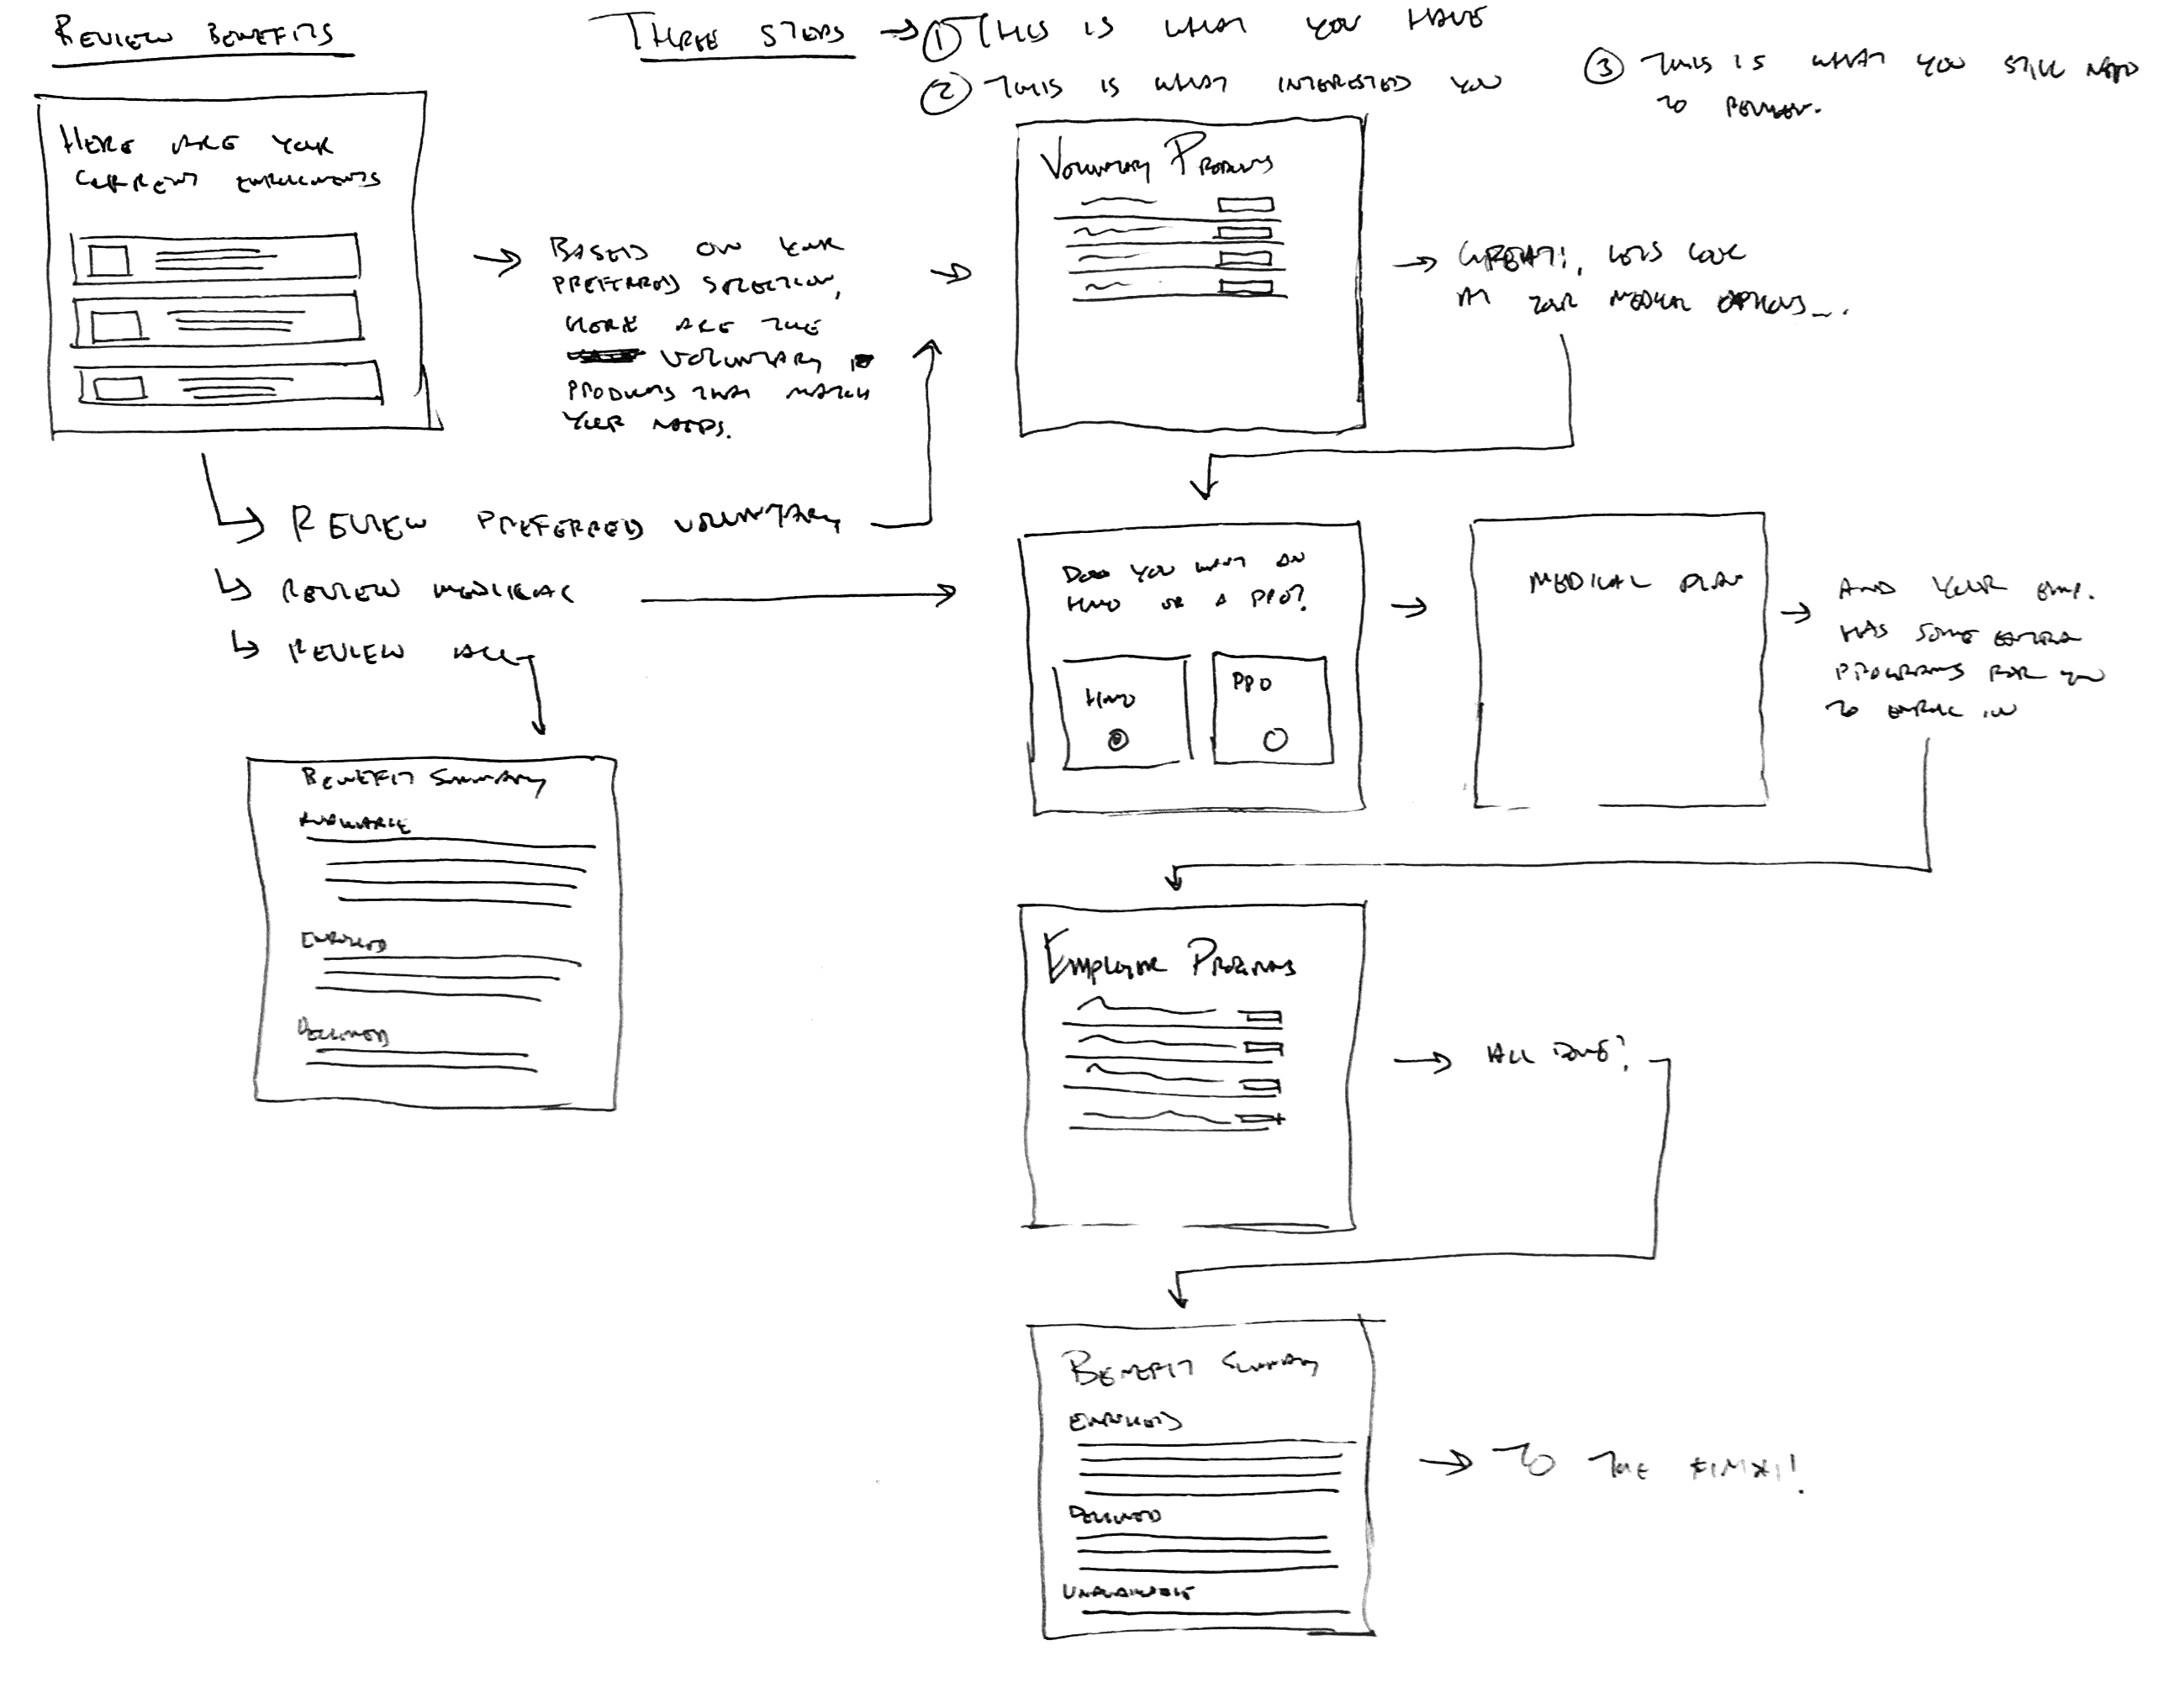 REVIEW BENEFITS
THREE STEPS → ① THIS IS WHAT YOU HAVE
② THIS IS WHAT INTERESTED YOU
③ THIS IS WHAT YOU STILL NEED
TO REVIEW.
HERE ARE YOUR
CURRENT ENROLLMENTS
BASED ON YOUR
PREFERRED SELECTION,
HERE ARE THE
VOLUNTARY
PRODUCTS THAT MATCH
YOUR NEEDS.
VOLUNTARY PRODUCTS
GREAT!, LETS LOOK
AT YOUR MEDICAL OPTIONS...
REVIEW PREFERRED VOLUNTARY
REVIEW MEDICAL
REVIEW ALL
DO YOU WANT AN
HMO OR A PPO?
HMO
PPO
MEDICAL PLAN
AND YOUR EMP.
HAS SOME EXTRA
PROGRAMS FOR YOU
TO ENROLL IN
BENEFIT SUMMARY
AVAILABLE
ENROLLED
DECLINED
EMPLOYER PROGRAMS
ALL DONE?
BENEFIT SUMMARY
ENROLLED
DECLINED
UNAVAILABLE
→ TO THE